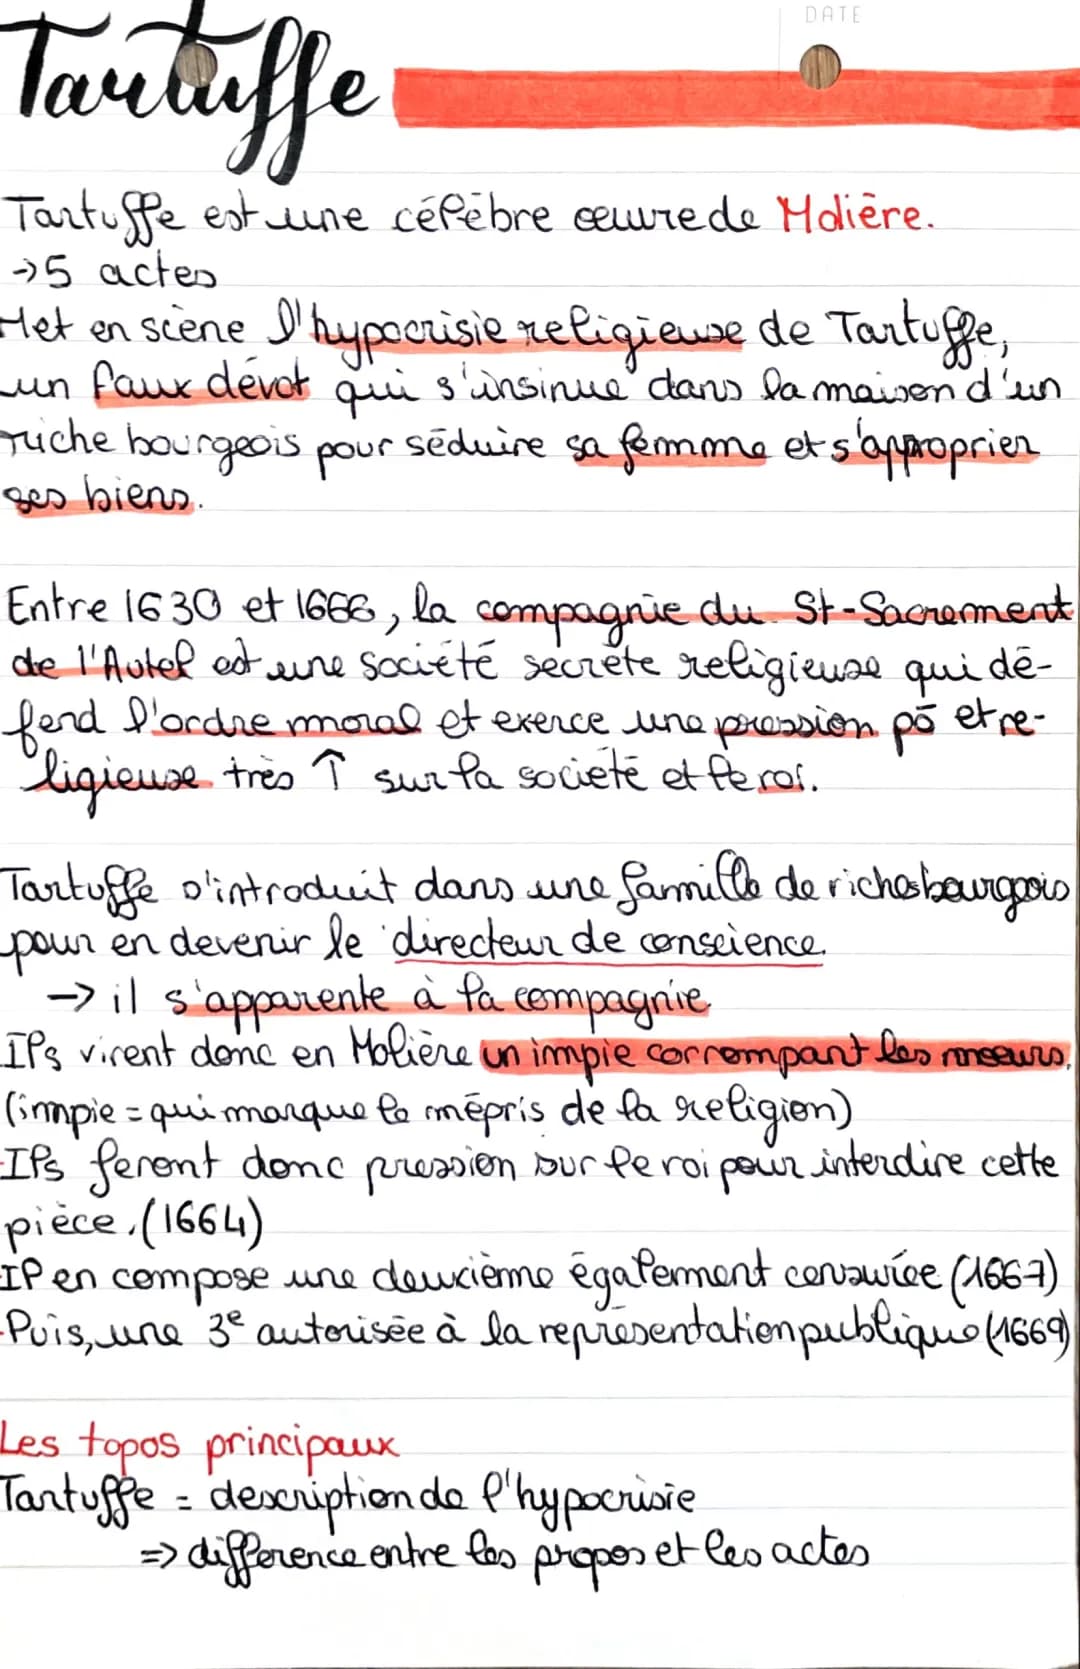 DATE
Tartuffe
Tartuffe est une célèbre œuvre de Molière.
→ 5 actes
Met en scène l'hypocrisie religieuse de Tartuffe,
un faux dévot qui s'insinue dans la maison d'un
riche bourgeois pour séduire sa femme et s'approprier
ses biens.
Entre 1630 et 1666, la compagnie du St-Sacrement
de l'Autel est une société secrète religieuse qui dé-
fend l'ordre moral et exerce une pression pō et re-
ligieuse très ↑ sur la société et le roi.
Tartuffe s'introduit dans une famille de riches bourgeois
pour en devenir le directeur de conscience.
→ il s'apparente à la compagnie
Ils virent donc en Molière un impie corrompant les mœurs.
(impie = qui marque le mépris de la religion)
Ils feront donc pression sur le roi pour interdire cette
pièce. (1664)
Il en compose une deuxième également censurée (1667)
Puis, une 3e autorisée à la représentation publique (1669)
Les topos principaux
Tartuffe = description de l'hypocrisie
⇒ différence entre les propos et les actes